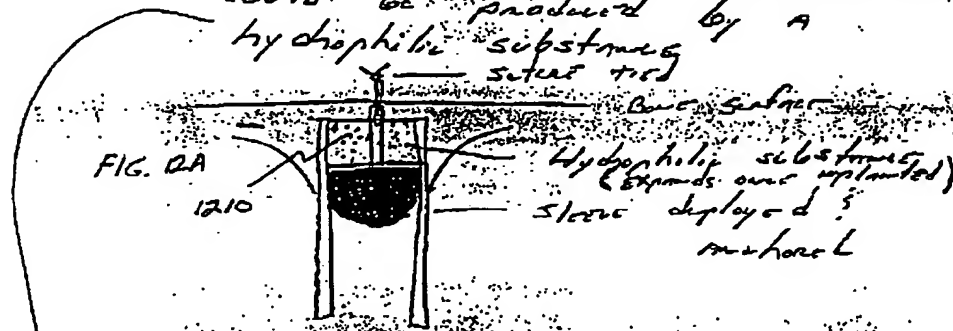 be produced by A
hydrophilic substance
suture tied
Bone surface
FIG. 12A
Hydrophilic substance
(Expands once implanted)
1210
Sleeve deployed &
anchored